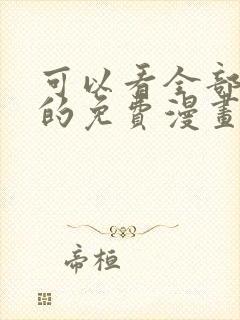 可以看全部
的免費漫畫
帝桓